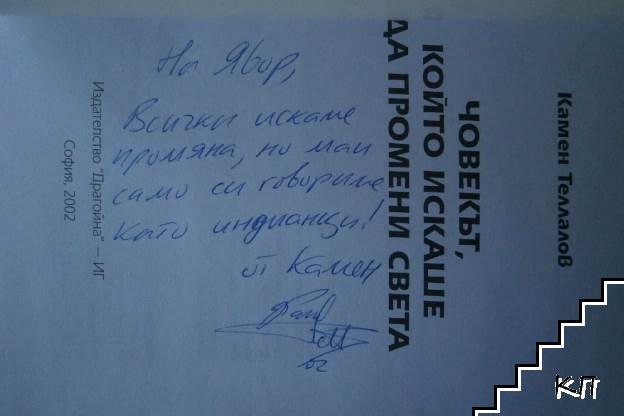 Камен Теллалов
ЧОВЕКЪТ,
КОЙТО ИСКАШЕ
ДА ПРОМЕНИ СВЕТА
На Явор,
Всички искаме
промяна, но май
само си говорим
като индианци!
от Камен
02
Издателство "Драгойна" – ИГ
София, 2002
КП